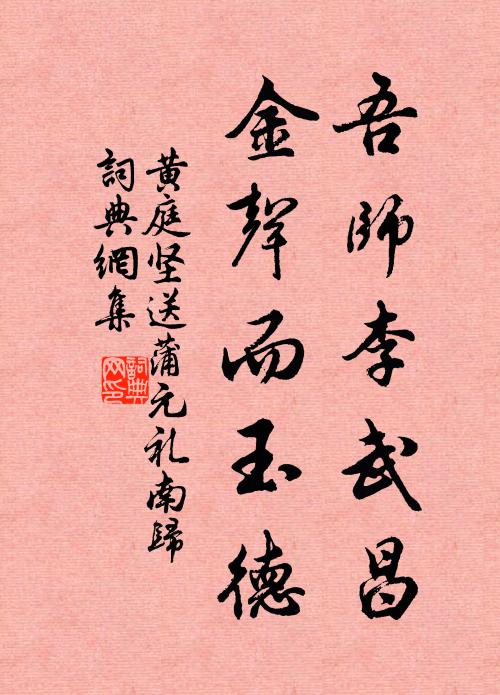 吾師李武昌
金聲而玉德
黄庭坚送蒲元礼南歸
詞典網集
詞典网印